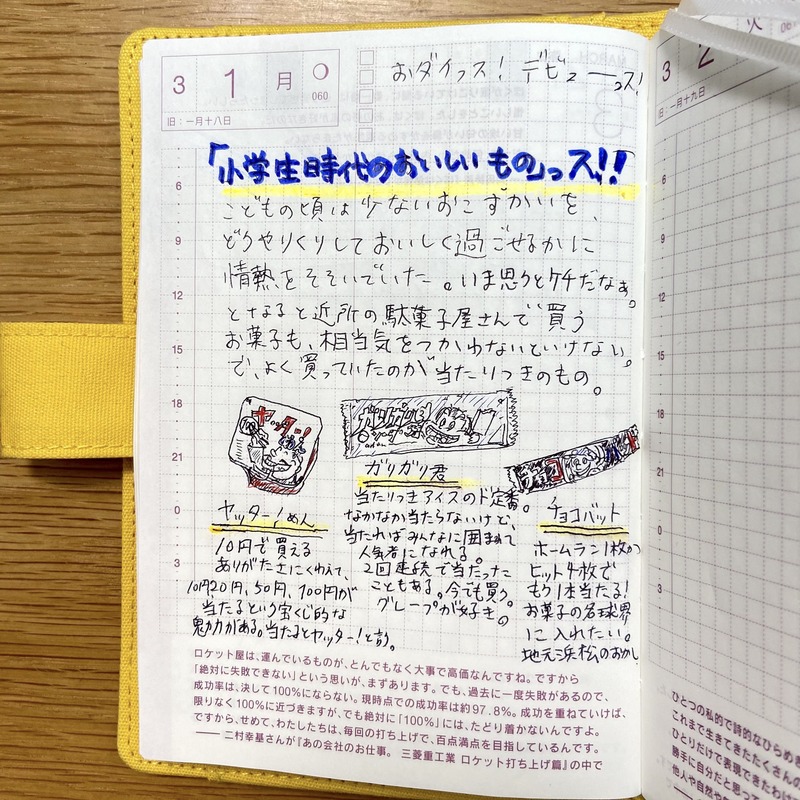 3 1 月
060
旧：一月十八日
おダイっス！デビューっス！
「小学生時代のおいしいもの」っス!!
こどもの頃は少ないおこずかいを、
どうやりくりしておいしく過ごせるかに
情熱をそそいでいた。いま思うとケチだなぁ。
となると近所の駄菓子屋さんで買う
お菓子も、相当気をつかわないといけない。
で、よく買っていたのが当たりつきのもの。
ヤッター!
ガリガリ君
ヤッター!めん
10円で買える
ありがたさにくわえて、
10円20円、50円、100円が
当たるという宝くじ的な
魅力がある。当たるとヤッター!と言う。
ガリガリ君
当たりつきアイスのド定番。
なかなか当たらないけど、
当たればみんなに囲まれて
人気者になれる。
2回連続で当たった
こともある。今でも買う。
グレープが好き。
チョコバット
ホームラン1枚か
ヒット4枚で
もう1本当たる!
お菓子の名球界
に入れたい。
地元浜松のおかし
6
9
12
15
18
21
0
3
ロケット屋は、運んでいるものが、とんでもなく大事で高価なんですね。ですから
「絶対に失敗できない」という思いが、まずあります。でも、過去に一度失敗があるので、
成功率は、決して100%にならない。現時点での成功率は約97.8%。成功を重ねていけば、
限りなく100%に近づきますが、でも絶対に「100%」には、たどり着かないんですよ。
ですから、せめて、わたしたちは、毎回の打ち上げで、百点満点を目指しているんです。
── 二村幸基さんが『あの会社のお仕事。 三菱重工業 ロケット打ち上げ篇』の中で
3 2 火
旧：一月十九日
6
9
12
15
18
21
0
3
ひとつの私的で詩的なひらめき
これまで生きてきたたくさんの
ひとりだけで表現できたわけ
勝手に自分だと思って
他人や自然や